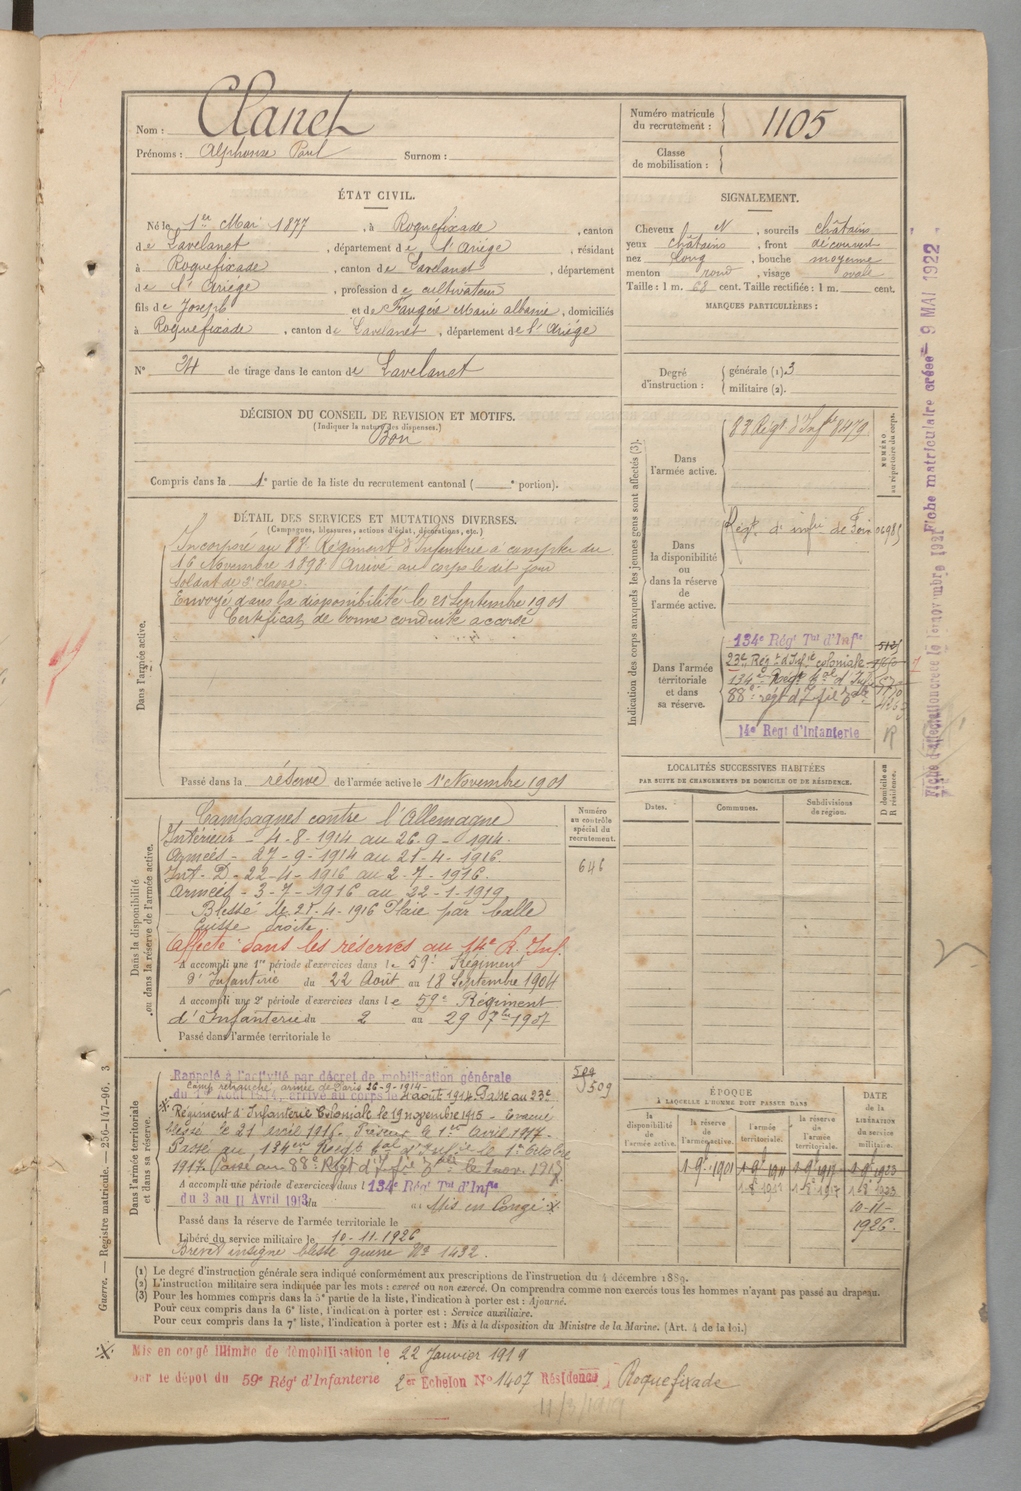 Nom : Clanet
Prénoms : Alphonse Paul Surnom :
Numéro matricule du recrutement : 1105
Classe de mobilisation :
ÉTAT CIVIL.
Né le 1er Mai 1877, à Roquefixade, canton
de Lavelanet, département de l'Ariège, résidant
à Roquefixade, canton de Lavelanet, département
de l'Ariège, profession de cultivateur
fils de Joseph et de Fangère Marie albanie, domiciliés
à Roquefixade, canton de Lavelanet, département de l'Ariège
N° 34 de tirage dans le canton de Lavelanet
SIGNALEMENT.
Cheveux N, sourcils châtains
yeux châtains, front découvert
nez Long, bouche moyenne
menton rond, visage ovale
Taille : 1 m. 68 cent. Taille rectifiée : 1 m. cent.
MARQUES PARTICULIÈRES :
Degré d'instruction : générale (1) 3
militaire (2).
DÉCISION DU CONSEIL DE REVISION ET MOTIFS.
(Indiquer la nature des dispenses.)
Bon
Compris dans la 1e partie de la liste du recrutement cantonal ( e portion).
DÉTAIL DES SERVICES ET MUTATIONS DIVERSES.
(Campagnes, blessures, actions d'éclat, décorations, etc.)
Dans l'armée active.
Incorporé au Régiment d'Infanterie à compter du
16 Novembre 1898 Arrivé au corps le dit jour
Soldat de 2e classe.
Envoyé dans la disponibilité le 21 Septembre 1901
Certificat de bonne conduite accordé
Passé dans la réserve de l'armée active le 1er Novembre 1901
Indication des corps auxquels les jeunes gens sont affectés (3).
NUMÉRO au répertoire du corps.
Dans l'armée active.
83 Régt d'Infrie 8479
Dans la disponibilité ou dans la réserve de l'armée active.
Régt d'infie de Foix 06985
Dans l'armée territoriale et dans sa réserve.
134e Régt Tal d'Infie
23e Rég t d'Inf ie coloniale
134e Régt tal d'Infie
88e régt d'Infie
14e Régt d'Infanterie
LOCALITÉS SUCCESSIVES HABITÉES
PAR SUITE DE CHANGEMENTS DE DOMICILE OU DE RÉSIDENCE.
Dates. Communes. Subdivisions de région. D domicile ou R résidence.
Dans la disponibilité ou dans la réserve de l'armée active.
Numéro au contrôle spécial du recrutement.
646
Campagnes contre l'Allemagne
Intérieur - 4-8-1914 au 26-9-1914.
Armées - 27-9-1914 au 21-4-1916.
Int. D - 22-4-1916 au 2-7-1916.
Armées - 3-7-1916 au 22-1-1919
Blessé le 21-4-1916 Plaie par balle
Cuisse droite
Affecté dans les réserves au 14e R. Inf.
A accompli une 1re période d'exercices dans le 59e Régiment
d'Infanterie du 22 Août au 18 Septembre 1904
A accompli une 2e période d'exercices dans le 59e Régiment
d'Infanterie du 2 au 29 7bre 1907
Passé dans l'armée territoriale le
Dans l'armée territoriale et dans sa réserve.
509
509
Rappelé à l'activité par décret de mobilisation générale
Camp retranché armée de Paris 26-9-1914
du 1er Août 1914, arrivé au corps le 4 août 1914 Passé au 23e
Régiment d'Infanterie Coloniale le 19 novembre 1915 - Evacué
blessé le 21 avril 1916. Présent le 1er Avril 1917.
Passé au 134eme Régt tal d'Infie le 1er Octobre
1917. Passé au 88e Régt d'Infie le 1 nov. 1917
A accompli une période d'exercices dans l 134e Régt Tal d'Infie
du 3 au 11 Avril 1913 du au Mis en Congé
Passé dans la réserve de l'armée territoriale le
Libéré du service militaire le 10-11-1926
Brevet insigne blessé guerre N° 1432.
ÉPOQUE
A LAQUELLE L'HOMME DOIT PASSER DANS
la disponibilité de l'armée active. la réserve de l'armée active. l'armée territoriale. la réserve de l'armée territoriale. DATE de la LIBÉRATION du service militaire.
1-9e 1901 1-9e 1911 1-9e 1917 1-9e 1923
1-8e 1917 1-8e 1923
10-11-
1926.
(1) Le degré d'instruction générale sera indiqué conformément aux prescriptions de l'instruction du 4 décembre 1889.
(2) L'instruction militaire sera indiquée par les mots : exercé ou non exercé. On comprendra comme non exercés tous les hommes n'ayant pas passé au drapeau.
(3) Pour les hommes compris dans la 5e partie de la liste, l'indication à porter est : Ajourné.
Pour ceux compris dans la 6e liste, l'indication à porter est : Service auxiliaire.
Pour ceux compris dans la 7e liste, l'indication à porter est : Mis à la disposition du Ministre de la Marine. (Art. 4 de la loi.)
Mis en congé illimité de démobilisation le 22 Janvier 1919
par le dépot du 59e Régt d'Infanterie 2er Echelon N° 1407 Résidence Roquefixade
11/3/1919
Guerre. — Registre matricule. — 256-147-96. 3
Fiche matriculaire créée - 9 MAI 1922